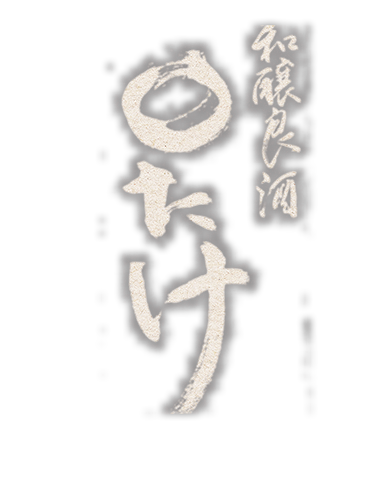 和醸良酒
○たけ